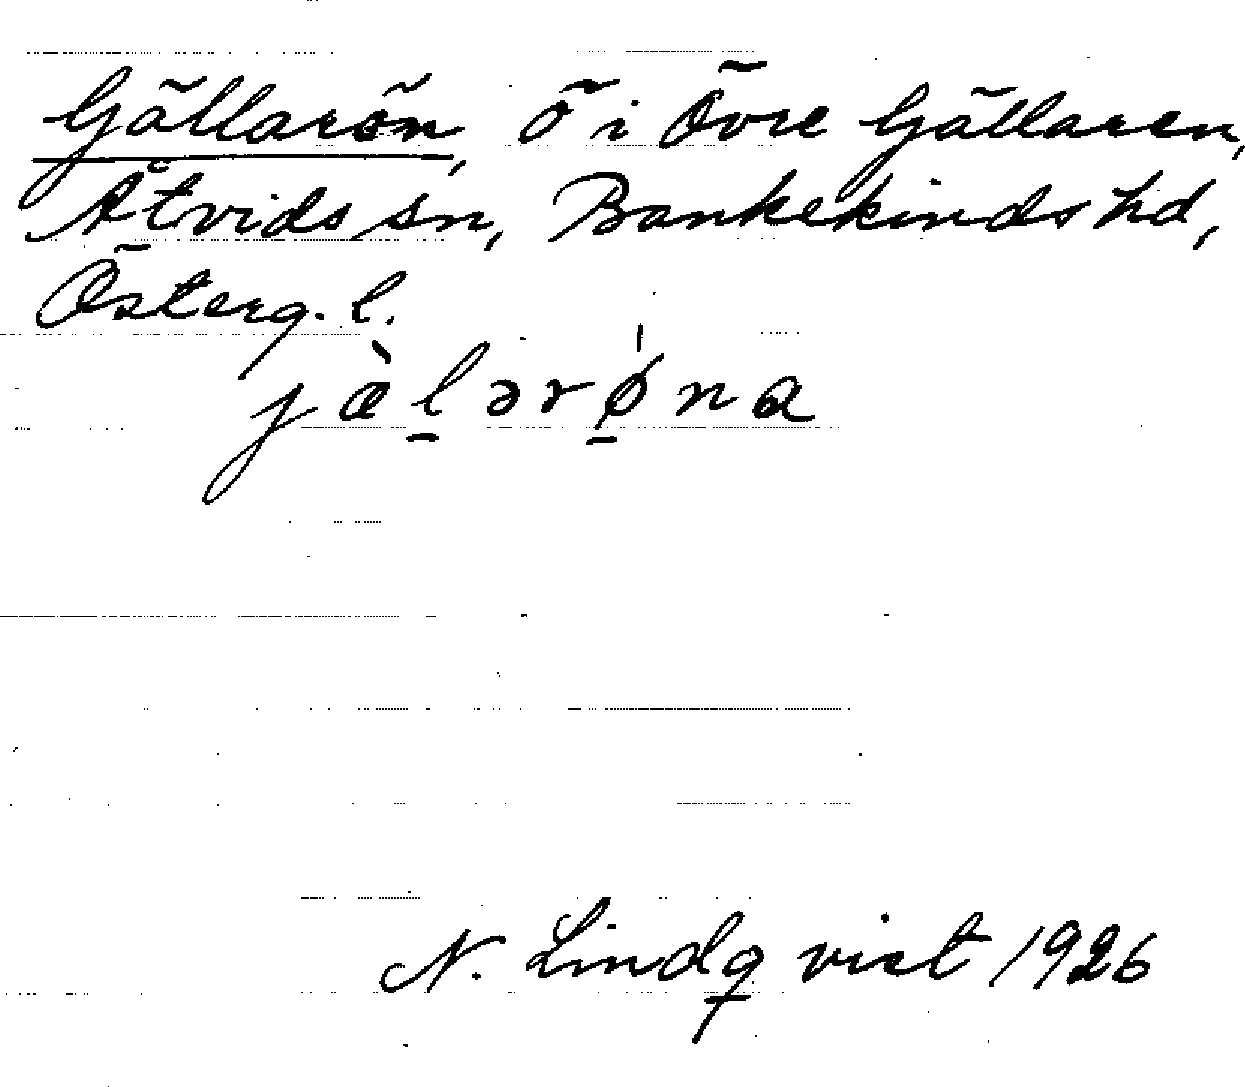 Gällarön, ö i Övre Gällaren,
Åtvids sn, Bankekinds hd,
Österg. l.
jæ̀l̠ərǿ̠na
N. Lindqvist 1926